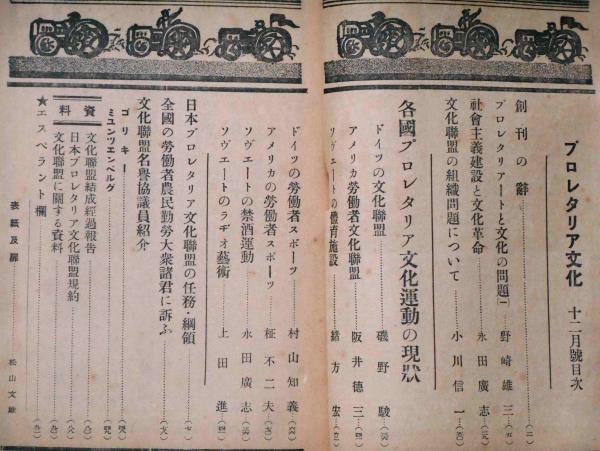 プロレタリア文化 十二月號目次
創刊の辭
プロレタリアートと文化の問題 野崎雄三
社會主義建設と文化革命 永田廣志
文化聯盟の組織問題について 小川信一
各國プロレタリア文化運動の現狀
ドイツの文化聯盟 磯野駿
アメリカ勞働者文化聯盟 阪井德三
ソヴエートの體育施設 緒方宏
ドイツの勞働者スポーツ 村山知義
アメリカの勞働者スポーツ 柾不二夫
ソヴエートの禁酒運動 永田廣志
ソヴエートのラヂオ藝術 上田進
日本プロレタリア文化聯盟の任務・綱領
全國の勞働者農民勤勞大衆諸君に訴ふ
文化聯盟名譽協議員紹介
ゴリキー
ミユンツエンベルグ
資料
文化聯盟結成經過報告
日本プロレタリア文化聯盟規約
文化聯盟に關する資料
★エスペラント欄
表紙及扉 松山文雄